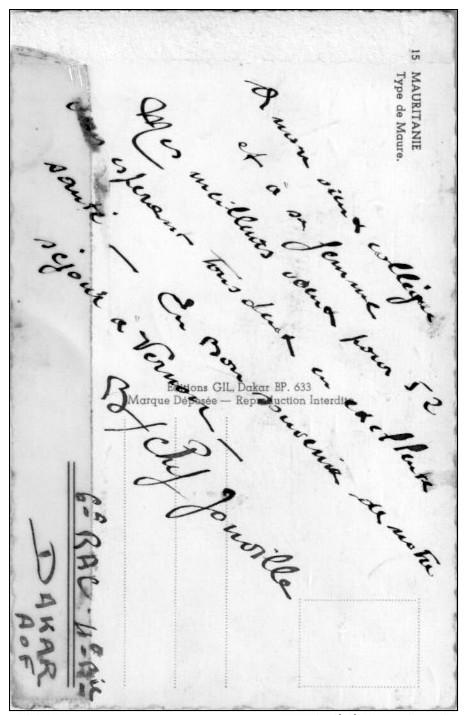 15 MAURITANIE
Type de Maure.
A mon vieux collègue
et à sa femme
Mes meilleurs vœux pour 52
espérant tous deux en excellente
santé — En bon souvenir de notre
séjour à Vernon —
Chef Jonville
Editions GIL, Dakar BP. 633
Marque Déposée — Reproduction Interdite
6e RAC. 11e Bie
DAKAR
AOF